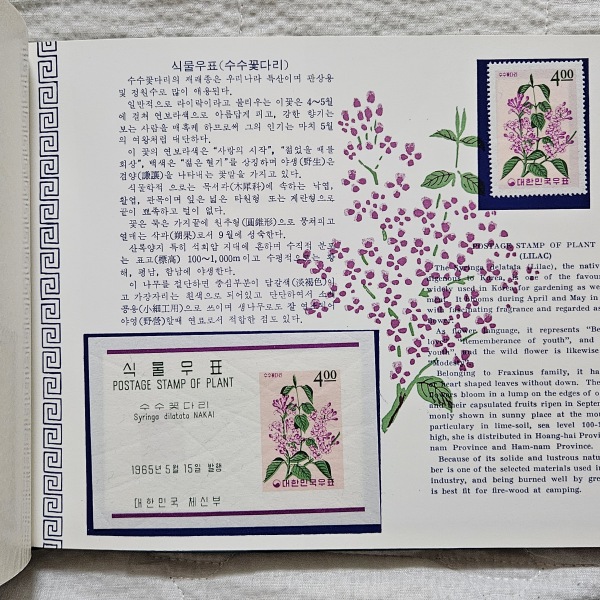 식물우표(수수꽃다리)
수수꽃다리의 재래종은 우리나라 특산이며 관상용
및 정원수로 많이 애용된다.
일반적으로 라이락이라고 불리우는 이꽃은 4~5월
에 걸쳐 연보라색으로 아름답게 피고, 강한 향기는
보는 사람을 매혹케 하므로써 그의 인기는 마치 5월
의 여왕처럼 대단하다.
이 꽃의 연보라색은 "사랑의 시작", "젊었을 때를
회상", 백색은 "젊은 혈기"를 상징하며 야생(野生)은
겸양(謙讓)을 나타내는 꽃말을 가지고 있다.
식물학적 으로는 목서과(木犀科)에 속하는 낙엽,
활엽, 관목이며 잎은 넓은 타원형 또는 계란형으로
끝이 뾰족하고 털이 없다.
꽃은 묵은 가지끝에 원추형(圓錐形)으로 뭉쳐피고
열매는 삭과(蒴果)로서 9월에 성숙한다.
산록양지 특히 석회암 지대에 흔하며 수직적 분포
는 표고(標高) 100~1,000m이고 수평적으로는 황
해, 평남, 함남에 야생한다.
이 나무를 절단하면 중심부분이 담갈색(淡褐色)이
고 가장자리는 흰색으로 되어있고 단단하여서 소
공용(小細工用)으로 쓰이며 생나무로도 잘
야영(野營)할때 연료로서 적합한 점도 있다.
수수꽃다리 4.00
대한민국우표
POSTAGE STAMP OF PLANT
(LILAC)
The Syringa dilatata (Lilac), the nativ
digenous to Korea, is one of the favour
widely used in Korea for gardening as we
It blooms during April and May in
with fascinating fragrance and regarded as
As flower language, it represents "Be
love, "Rememberance of youth", and
youth", and the wild flower is likewise
"Modest
Belonging to Fraxinus family, it ha
heart shaped leaves without down. The
flowers bloom in a lump on the edges of o
and their capsulated fruits ripen in Septem
monly shown in sunny place at the mou
particulary in lime-soil, sea level 100-1
high, she is distributed in Hoang-hai Provi
nam Province and Ham-nam Province.
Because of its solide and lustrous natu
ber is one of the selected materials used in
industry, and being burned well by gre
is best fit for fire-wood at camping.
식물우표
POSTAGE STAMP OF PLANT
수수꽃다리
Syringa dilatata NAKAI
1965년 5월 15일 발행
대한민국 체신부
수수꽃다리 4.00
대한민국우표